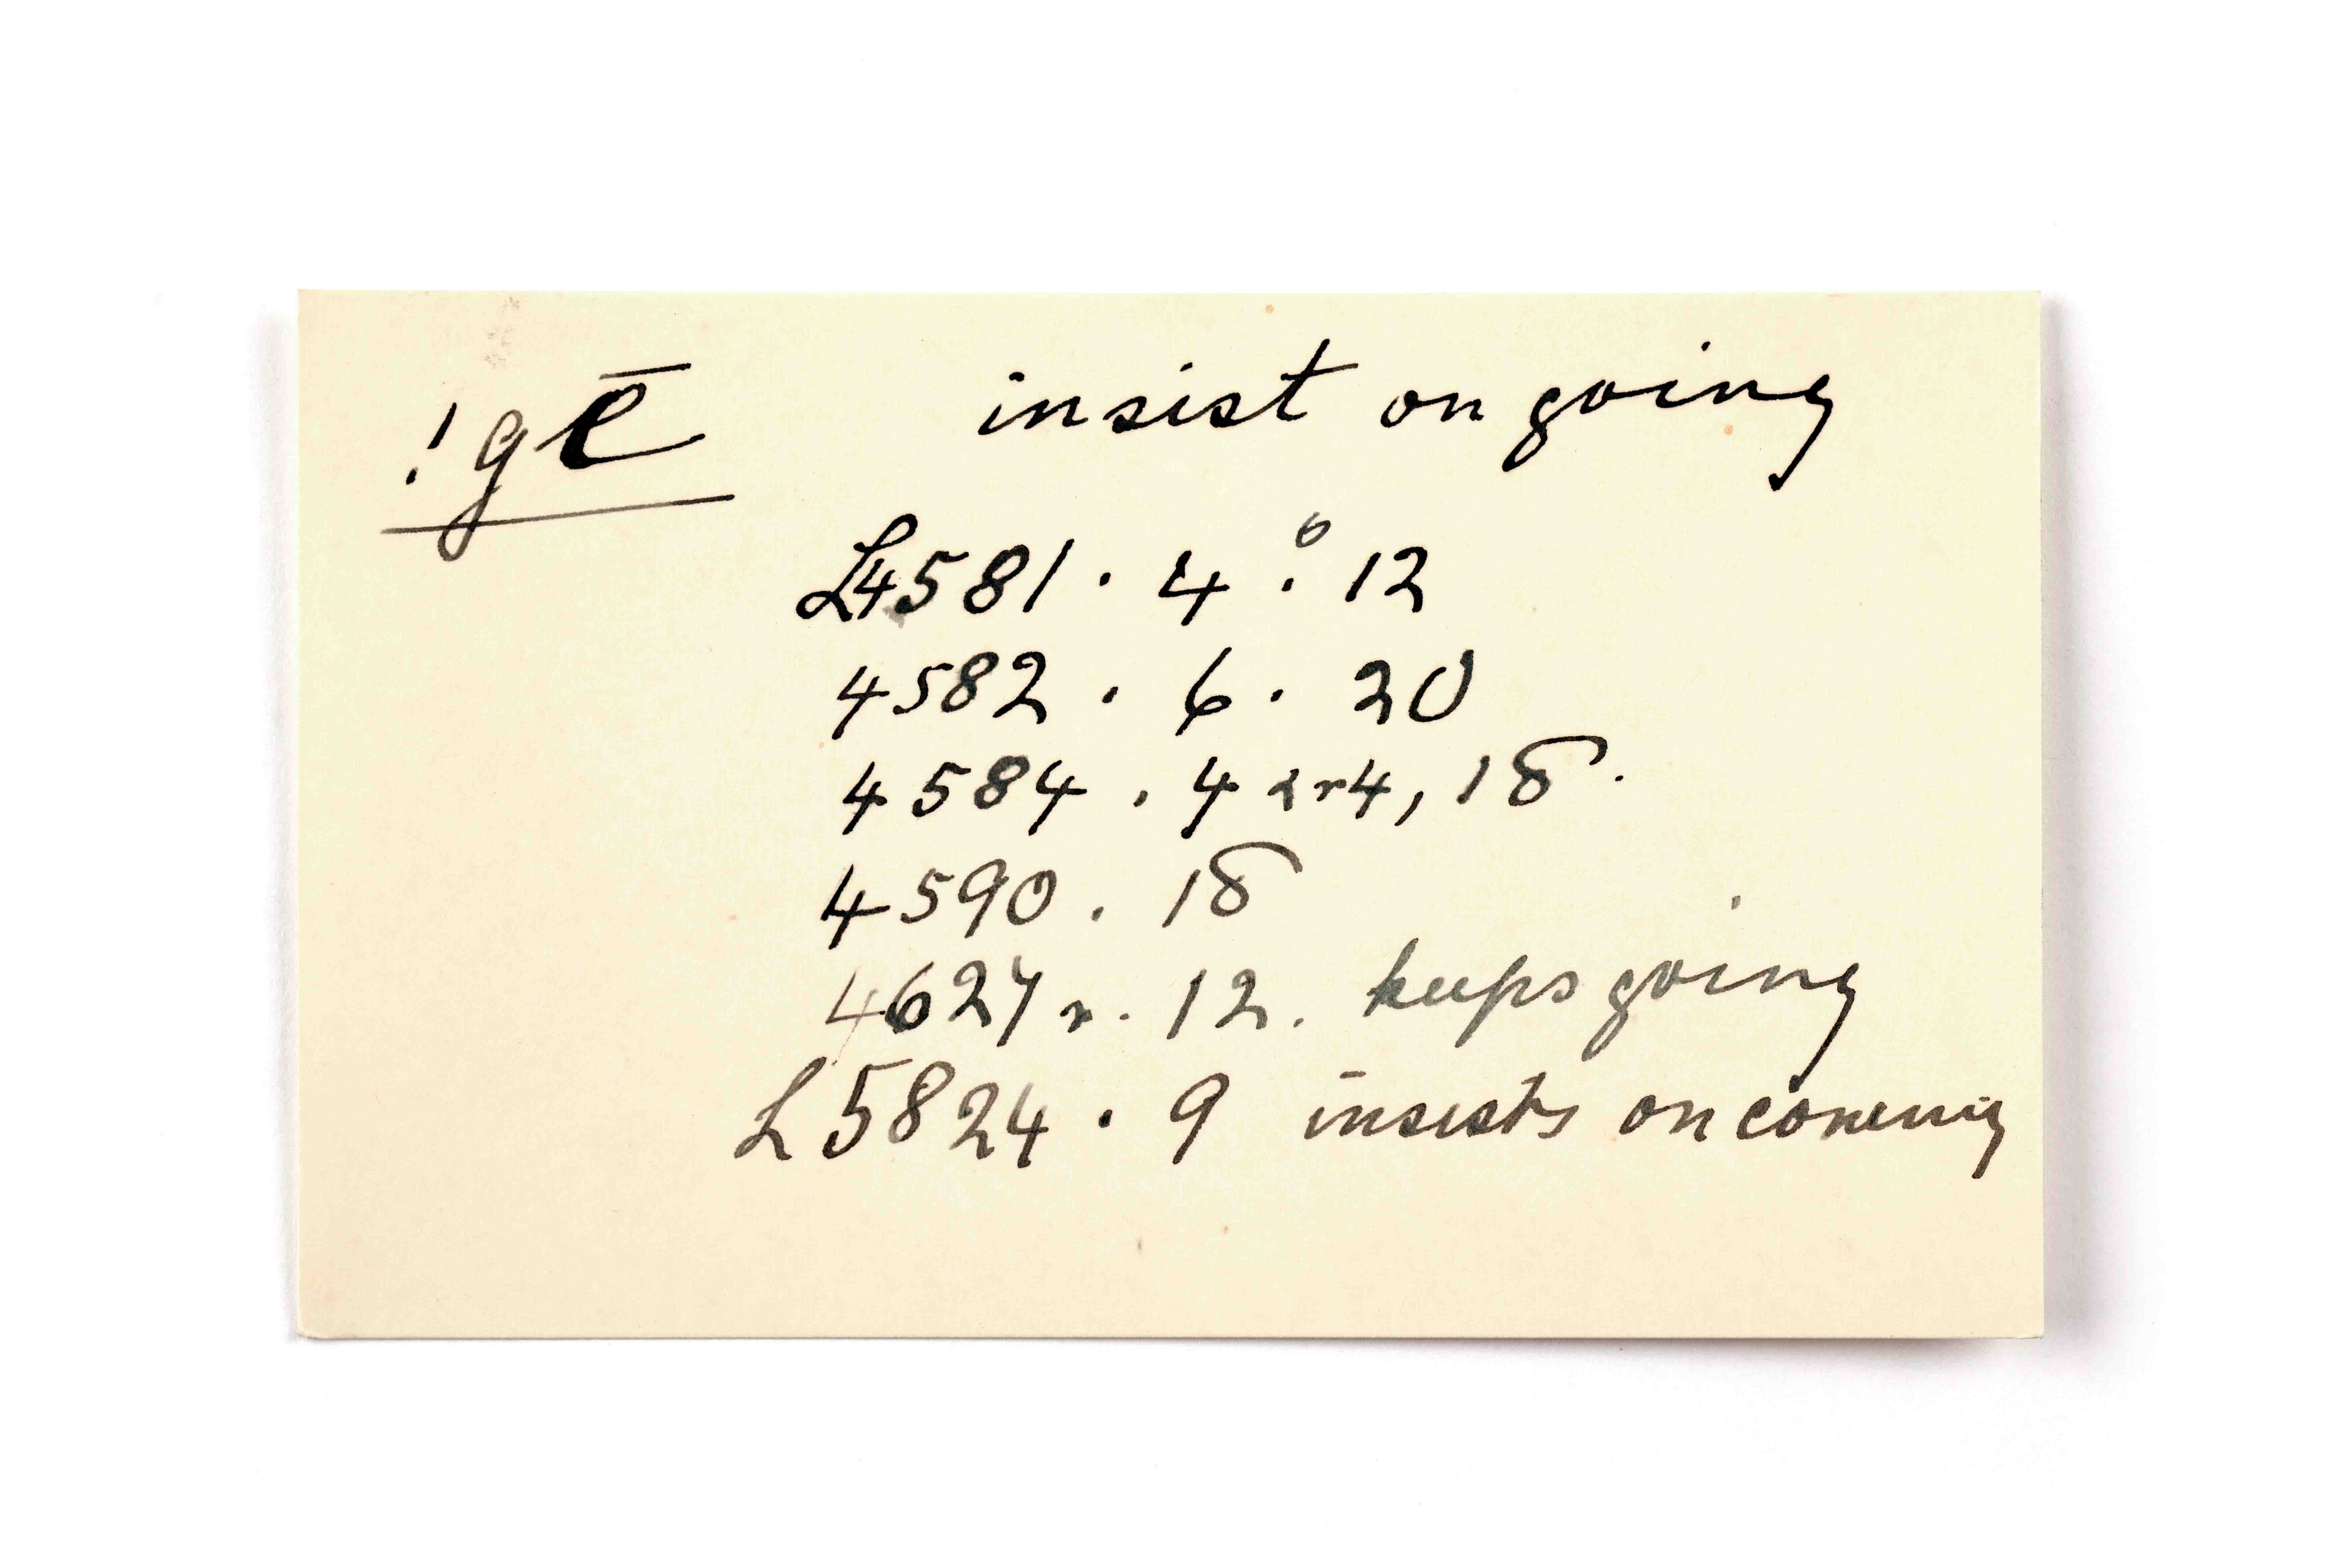 !gē insist on going
L4581 · 4 · 6 · 12
4582 · 6 · 20
4584 . 4 4, 18.
4590 . 18
4627 r. 12. keeps going
L5824 · 9 insists on coming